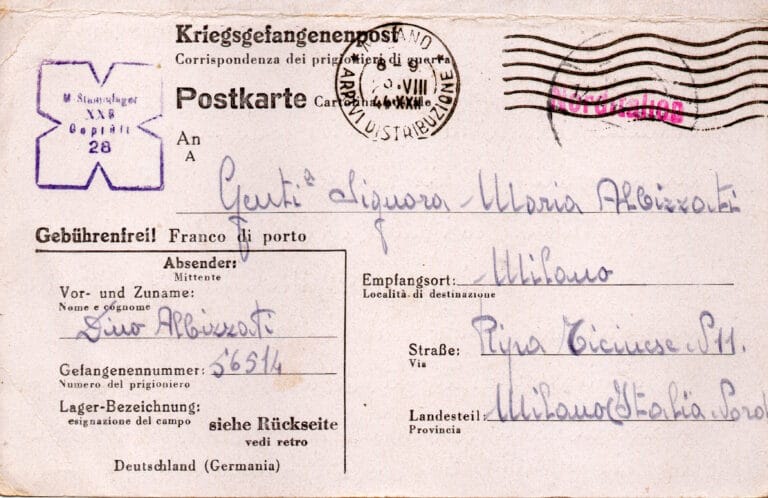 Kriegsgefangenenpost
Corrispondenza dei prigionieri di guerra
Postkarte
MILANO
8 9
VIII
44 XXII
ARRIVI DISTRIBUZIONE
Norditalien
M-Stammlager
XXB
Geprüft
28
An
A
Gentil Signora Maria Albizzati
Gebührenfrei! Franco di porto
Absender:
Mittente
Vor- und Zuname:
Nome e cognome
Dino Albizzati
Gefangenennummer: 56514
Numero del prigioniero
Lager-Bezeichnung:
esignazione del campo
siehe Rückseite
vedi retro
Deutschland (Germania)
Empfangsort: Milano
Località di destinazione
Straße: Ripa Ticinese N 11.
Via
Landesteil: Milano (Italia Nord
Provincia